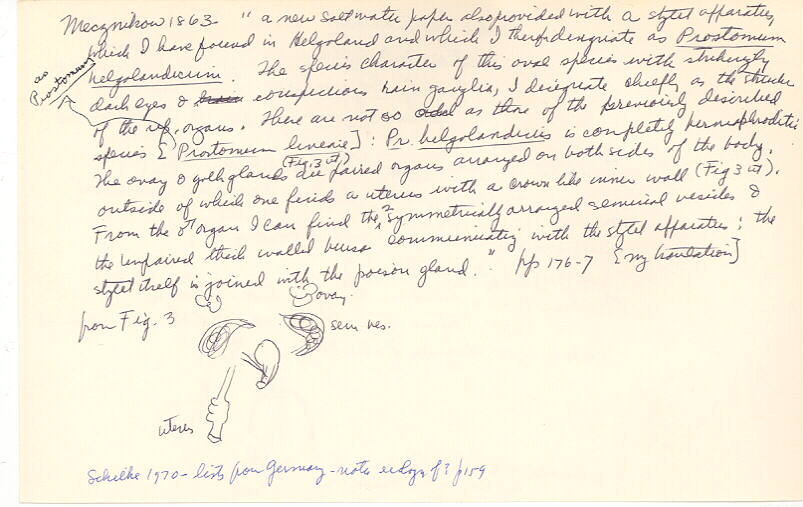 Mecznikow 1863 - "a new salt water form also provided with a stylet apparatus,
which I have found in Helgoland and which I therefore designate as Prostomum
as Prostomum
helgolandicum. The species character of this oval species with strikingly
dark eyes & conspicuous brain ganglia, I designate chiefly as the structure
of the rep. organs. These are not so as those of the previously described
species [Prostomum lineare]: Pr. helgolandicus is completely hermaphroditic
The ovary & yolk glands (Fig. 3 ut) are paired organs arranged on both sides of the body.
outside of which one finds a uterus with a crown like inner wall (Fig 3 ut).
From the ♂ organ I can find the 2 symmetrically arranged seminal vesicles &
the unpaired thick walled bursa communicating with the stylet apparatus; the
stylet itself is joined with the poison gland." pp 176-7 [my translation]
from Fig. 3
ovary.
sem ves.
uterus
Schilke 1970 - lists from Germany - notes ecology of? p 159